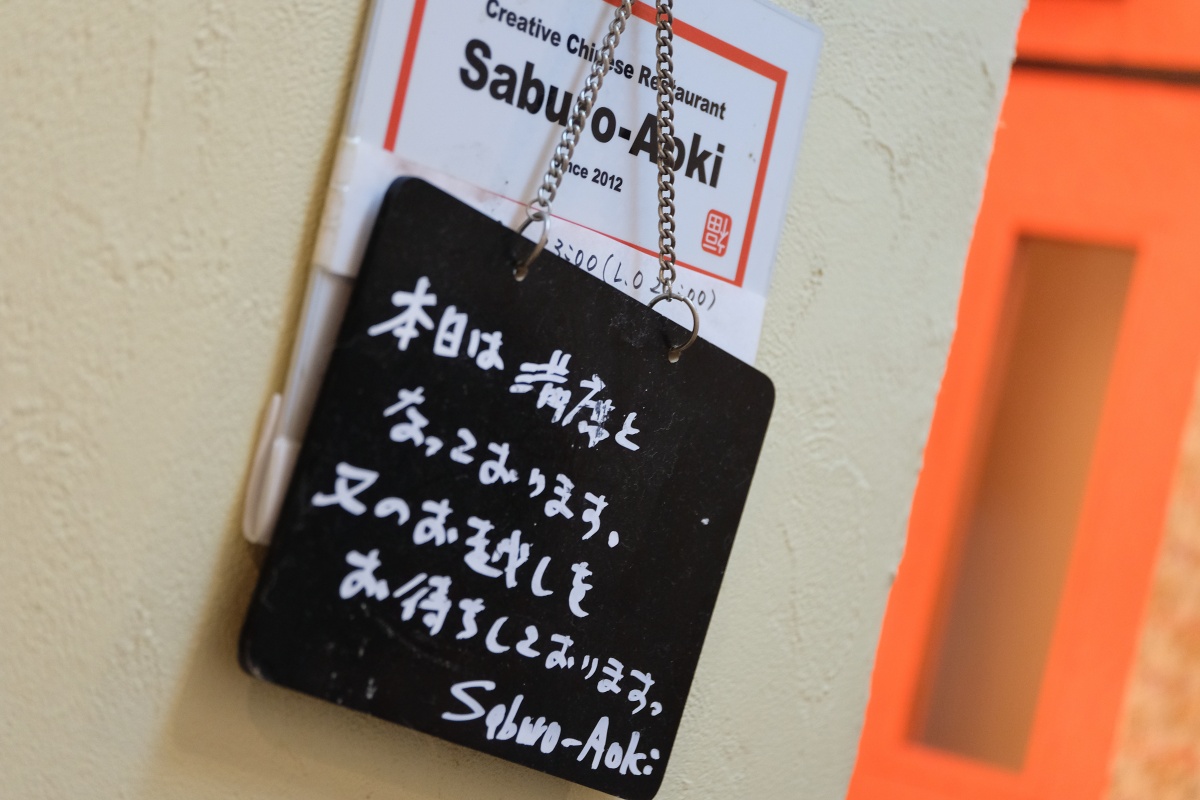 Creative Chinese Restaurant
Saburo-Aoki
Since 2012
福
3:00(L.O 2 :00)
本日は満席と
なっております。
又のお越しを
お待ちしております。
Saburo-Aoki